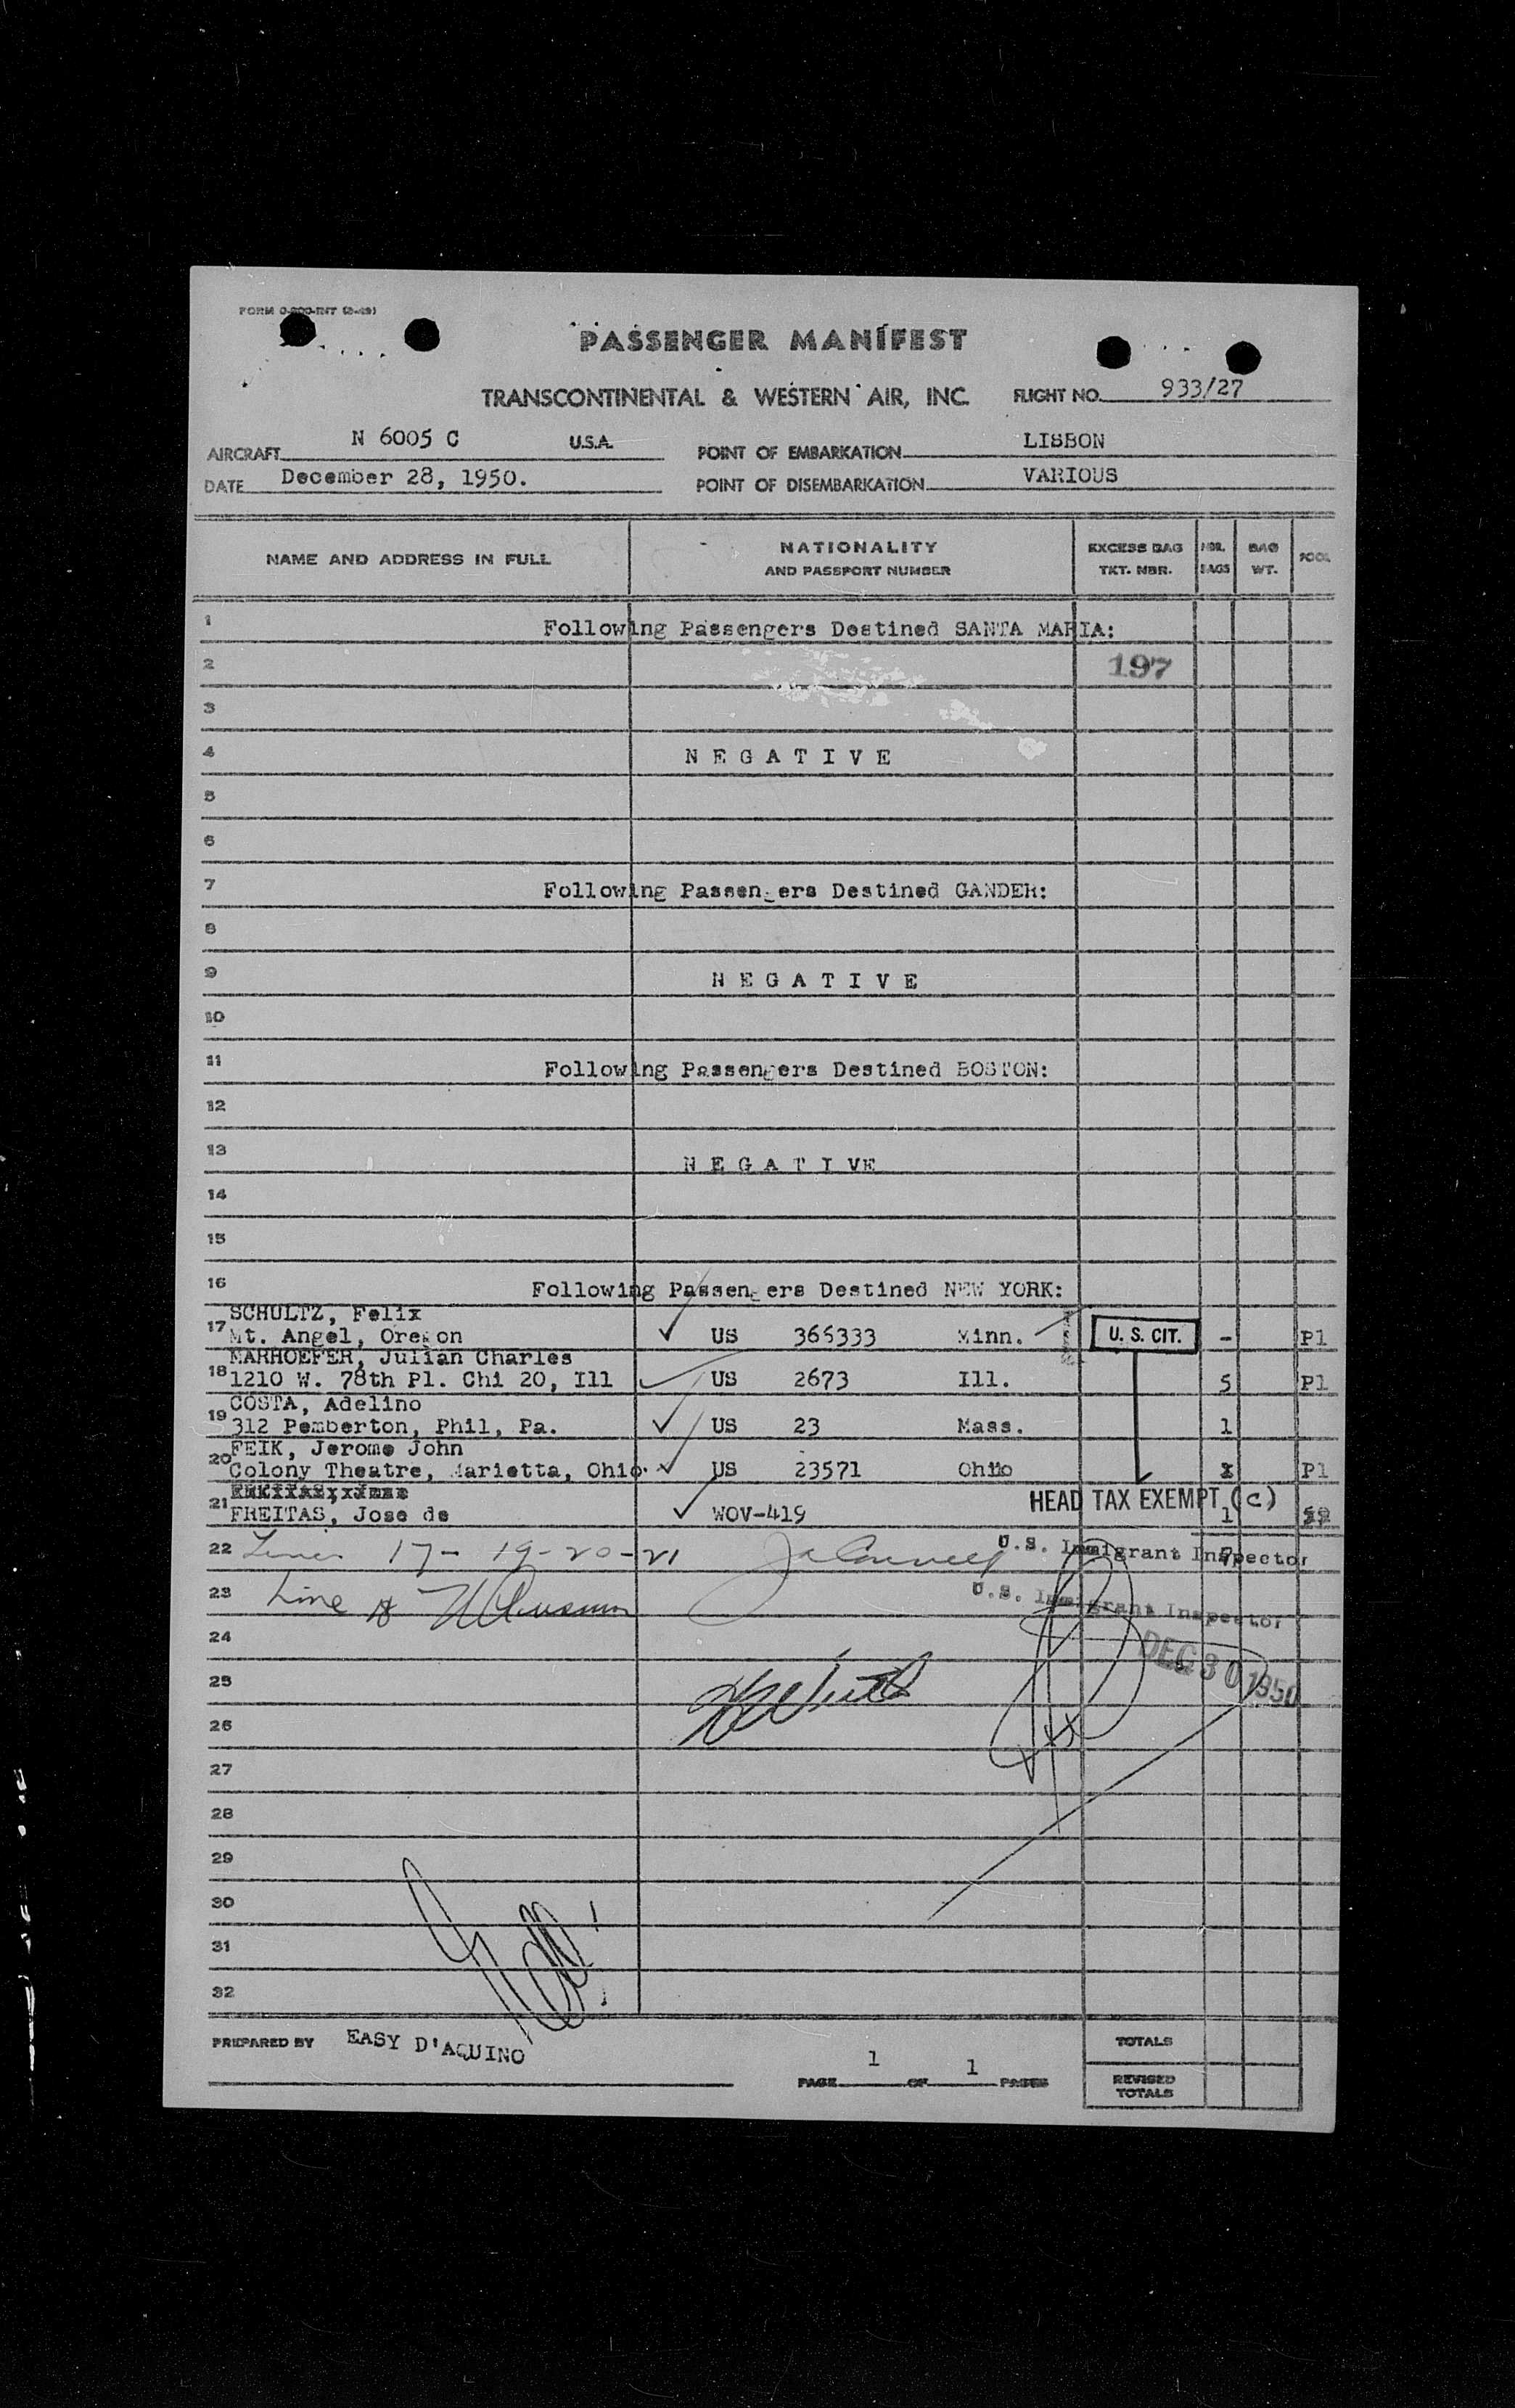 FORM 0-200-INT (3-49)
PASSENGER MANIFEST
TRANSCONTINENTAL & WESTERN AIR, INC. FLIGHT NO. 933/27
AIRCRAFT N 6005 C U.S.A. POINT OF EMBARKATION LISBON
DATE December 28, 1950. POINT OF DISEMBARKATION VARIOUS
NAME AND ADDRESS IN FULL NATIONALITY AND PASSPORT NUMBER EXCESS BAG TKT. NBR. NBR. BAGS BAG WT. POOL
1 Following Passengers Destined SANTA MARIA:
2 197
3
4 N E G A T I V E
5
6
7 Following Passengers Destined GANDER:
8
9 N E G A T I V E
10
11 Following Passengers Destined BOSTON:
12
13 N E G A T I VE
14
15
16 Following Passengers Destined NEW YORK:
SCHULTZ, Felix
17 Mt. Angel, Oregon US 366333 Minn. U. S. CIT. - P1
MARHOEFER, Julian Charles
18 1210 W. 78th Pl. Chi 20, Ill US 2673 Ill. 5 P1
COSTA, Adelino
19 312 Pemberton, Phil, Pa. US 23 Mass. 1
FEIK, Jerome John
20 Colony Theatre, Marietta, Ohio. US 23571 Ohio P1
HEAD TAX EXEMPT (C)
21 FREITAS, Jose de WOV-419 1
22 Lines 17- 19-20-21 U.S. Immigrant Inspector
23 Line 18 U.S. Immigrant Inspector
24
DEC 30 1950
25
26
27
28
29
30
31
32
PREPARED BY EASY D'AQUINO TOTALS
PAGE 1 OF 1 PAGES REVISED TOTALS